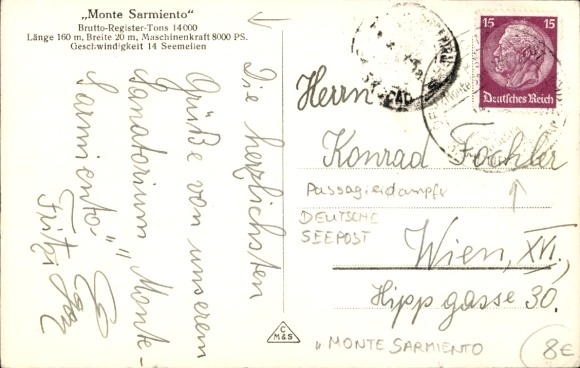 „Monte Sarmiento"
Brutto-Register-Tons 14000
Länge 160 m, Breite 20 m, Maschinenkraft 8000 PS.
Geschwindigkeit 14 Seemeilen
Die herzlichsten
Grüße von unserem
Sanatorium „Monte-
Sarmiento"
Fritzi
15 15
Deutsches Reich
Herrn
Konrad Fochler
Passagierdampfr
DEUTSCHE
SEEPOST
Wien, XVI.,
Hippgasse 30.
„MONTE SARMIENTO
8€
C
M&S